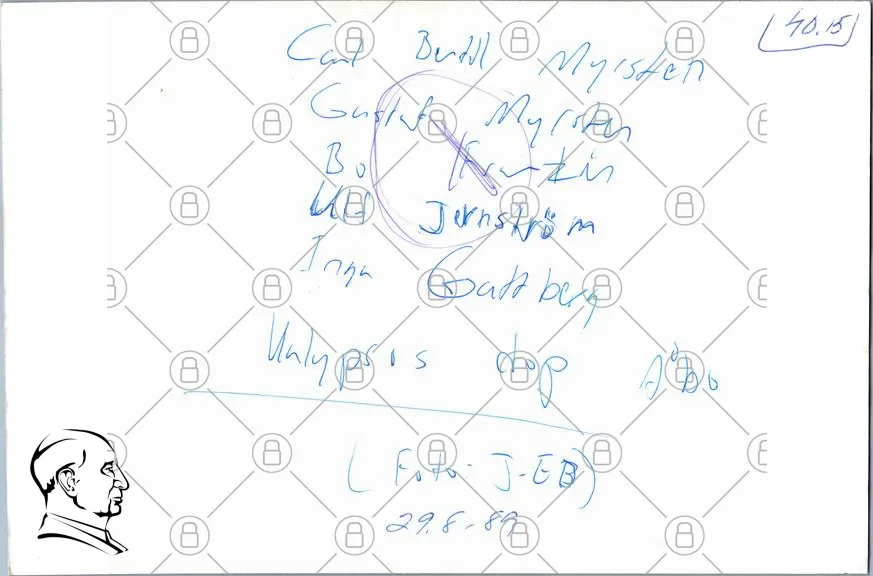 40.15
Carl Bertil Myrsten
Gustaf Myrsten
Bo Franzén
Ulf Jernström
Inga Gottberg
dop Åbo
(Foto: J-EB)
29.8-89